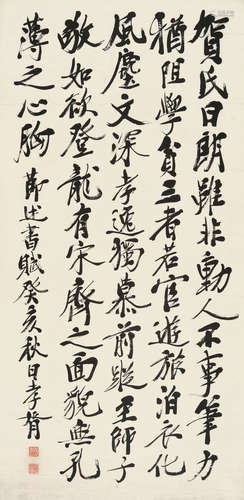 賀氏日朗雖非動人不事筆力
猶阻學貧三者若官遊旅泊衣化
風塵文深孝逸獨慕前蹤至師子
敬如欲登龍有宋齊之面貌無孔
薄之心胸節述書賦癸亥秋日孝胥